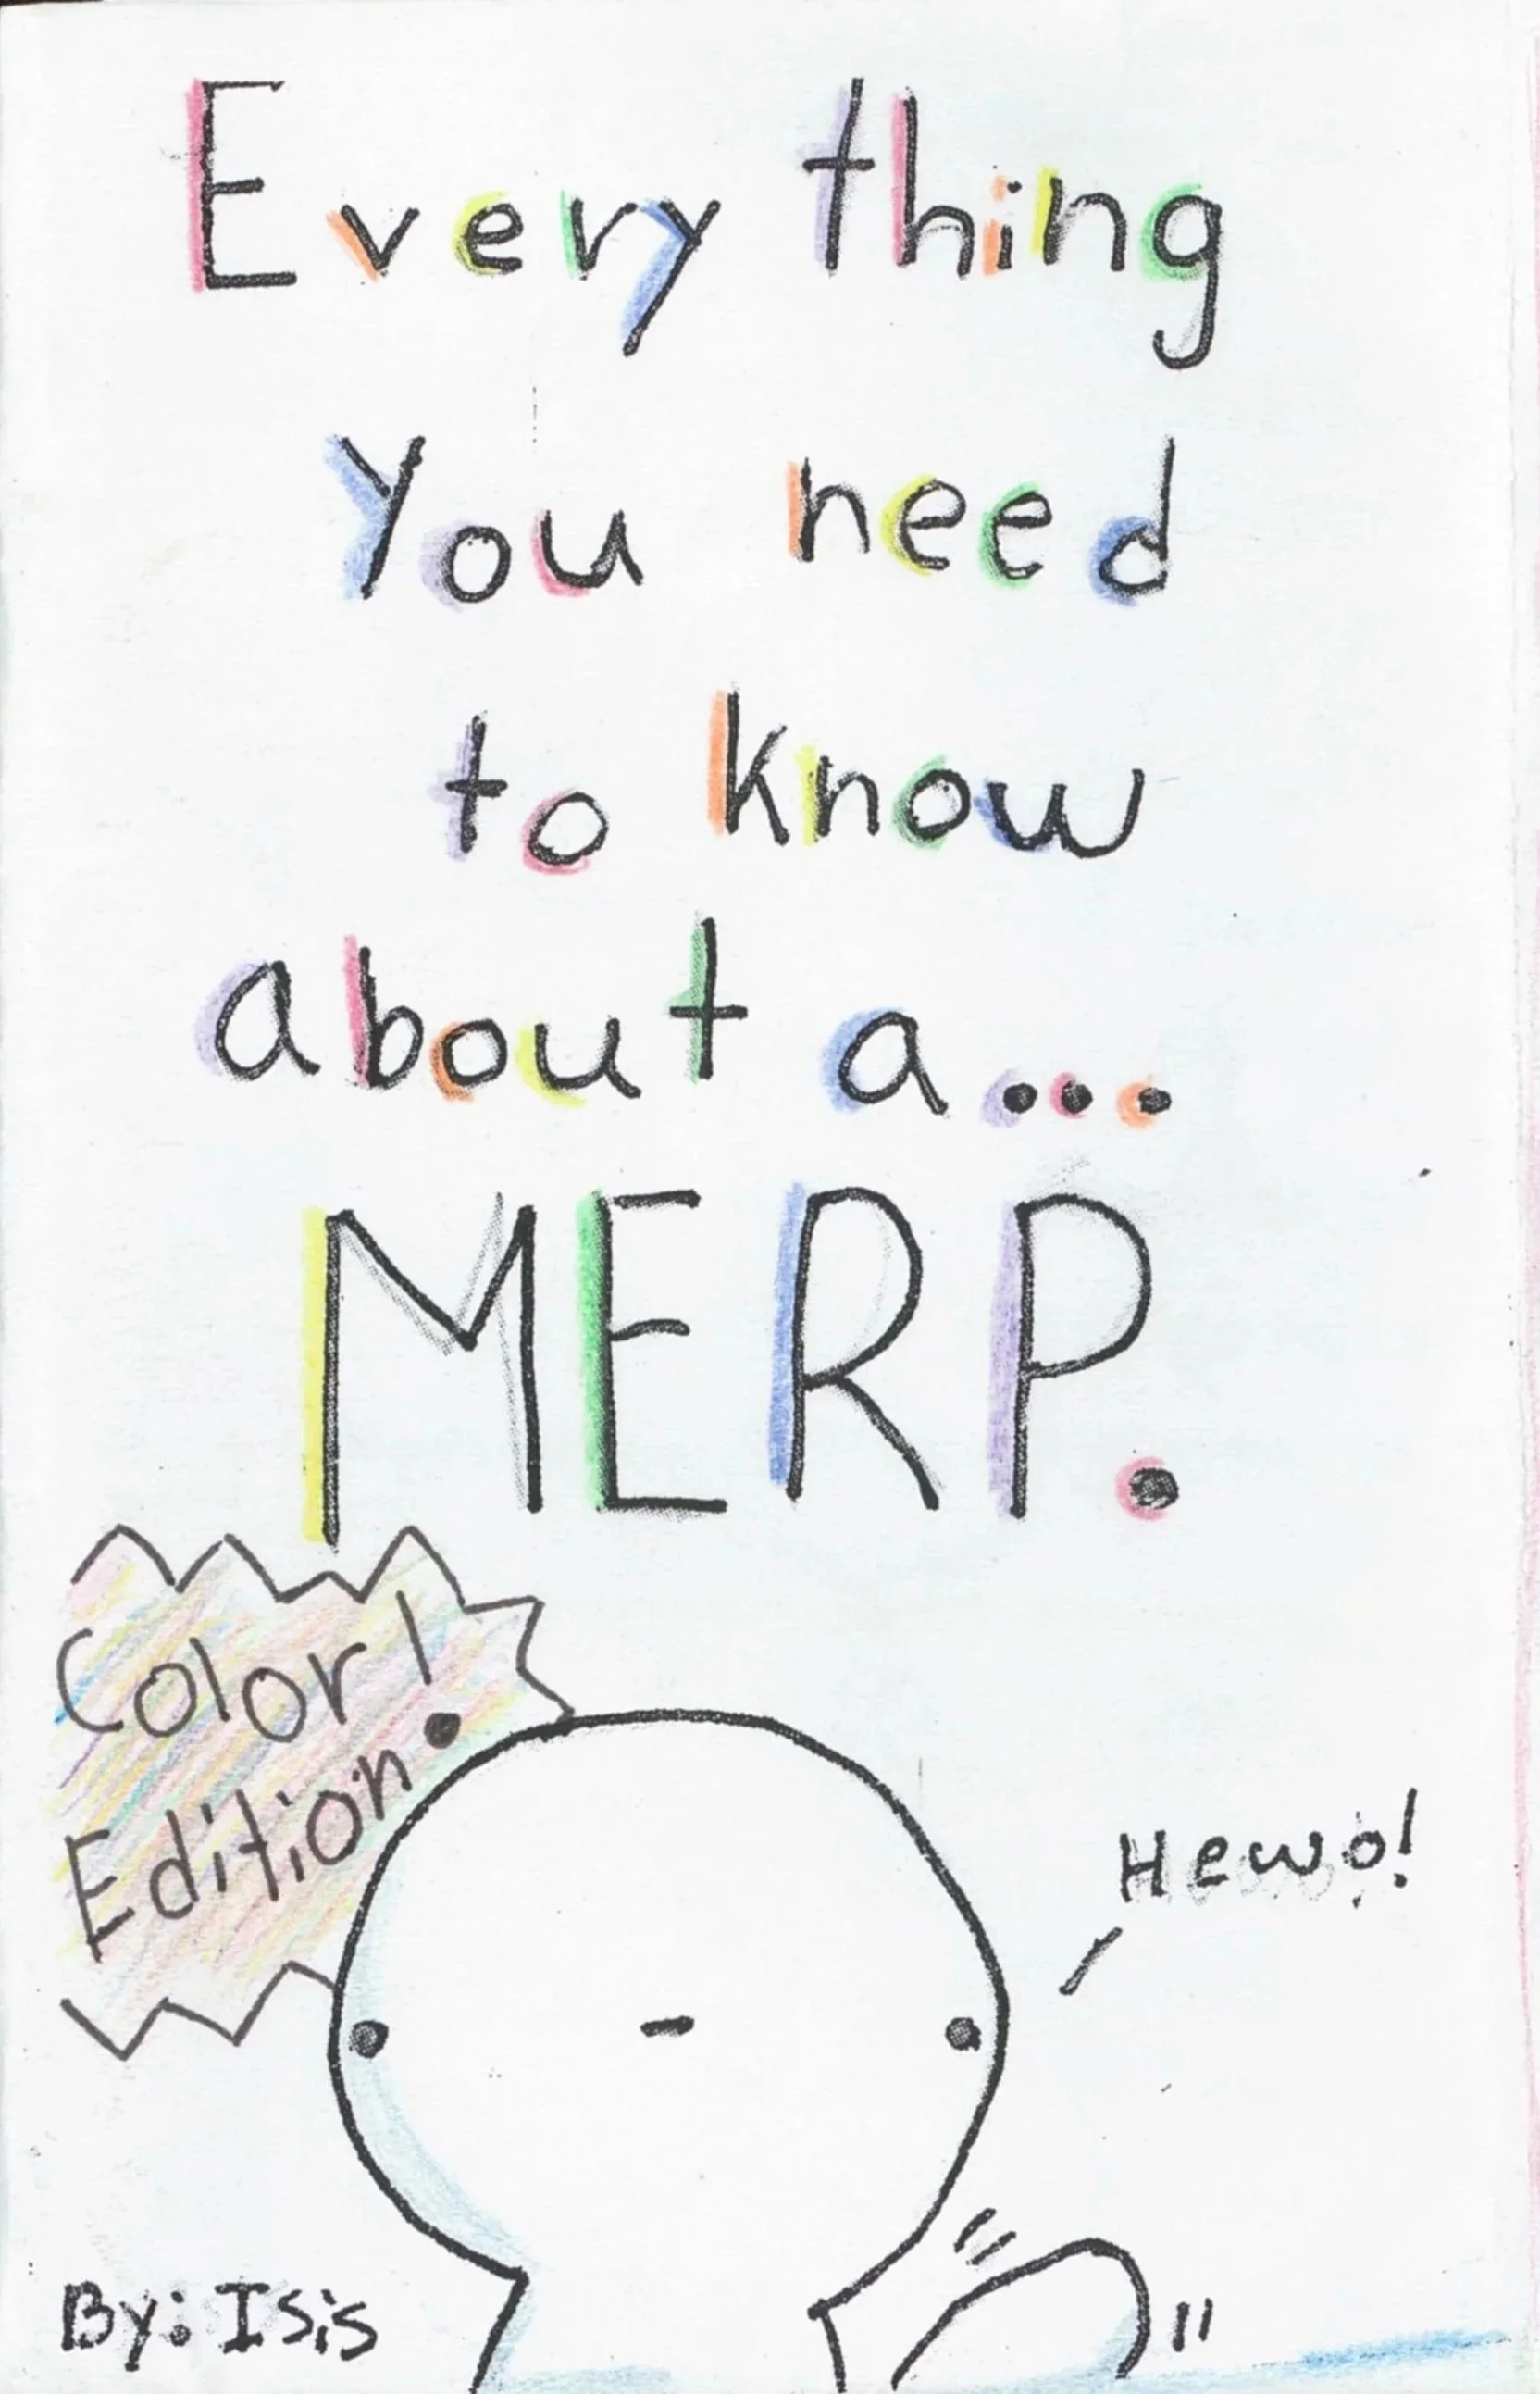 Everything
You need
to know
about a...
MERP.
Color!
Edition
Hewo!
By: Isis